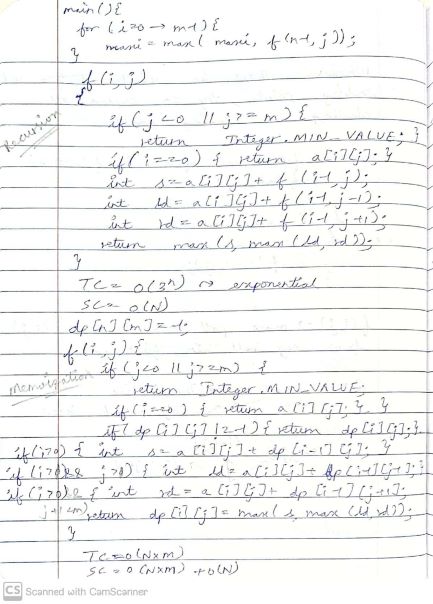 main(){
for (i=0 → m-1){
maxi = max( maxi, f(n-1, j));
}
f(i, j)
{
Recursion
if(j<0 || j>=m){
return Integer.MIN_VALUE; }
if(i==0) { return a[i][j]; }
int s=a[i][j]+ f(i-1, j);
int ld=a[i][j]+ f(i-1, j-1);
int rd=a[i][j]+ f(i-1, j+1);
return max(s, max(ld, rd));
}
TC= O(3ⁿ) → exponential
SC= O(N)
dp[n][m]=-1;
f(i, j){
Memoization
if(j<0 || j>=m) {
return Integer.MIN_VALUE;
if(i==0) { return a[i][j]; } }
if(dp[i][j]!=-1){ return dp[i][j]; }
if(i>0) { int s=a[i][j]+ dp[i-1][j]; }
if(i>0 && j>0) { int ld=a[i][j]+ dp[i-1][j-1];
if(i>0)& { int rd=a[i][j]+ dp[i-1][j+1];
j+1<m) return dp[i][j]=max(s, max(ld, rd));
}
TC=O(NxM)
SC=O(NxM) +O(N)
CS Scanned with CamScanner